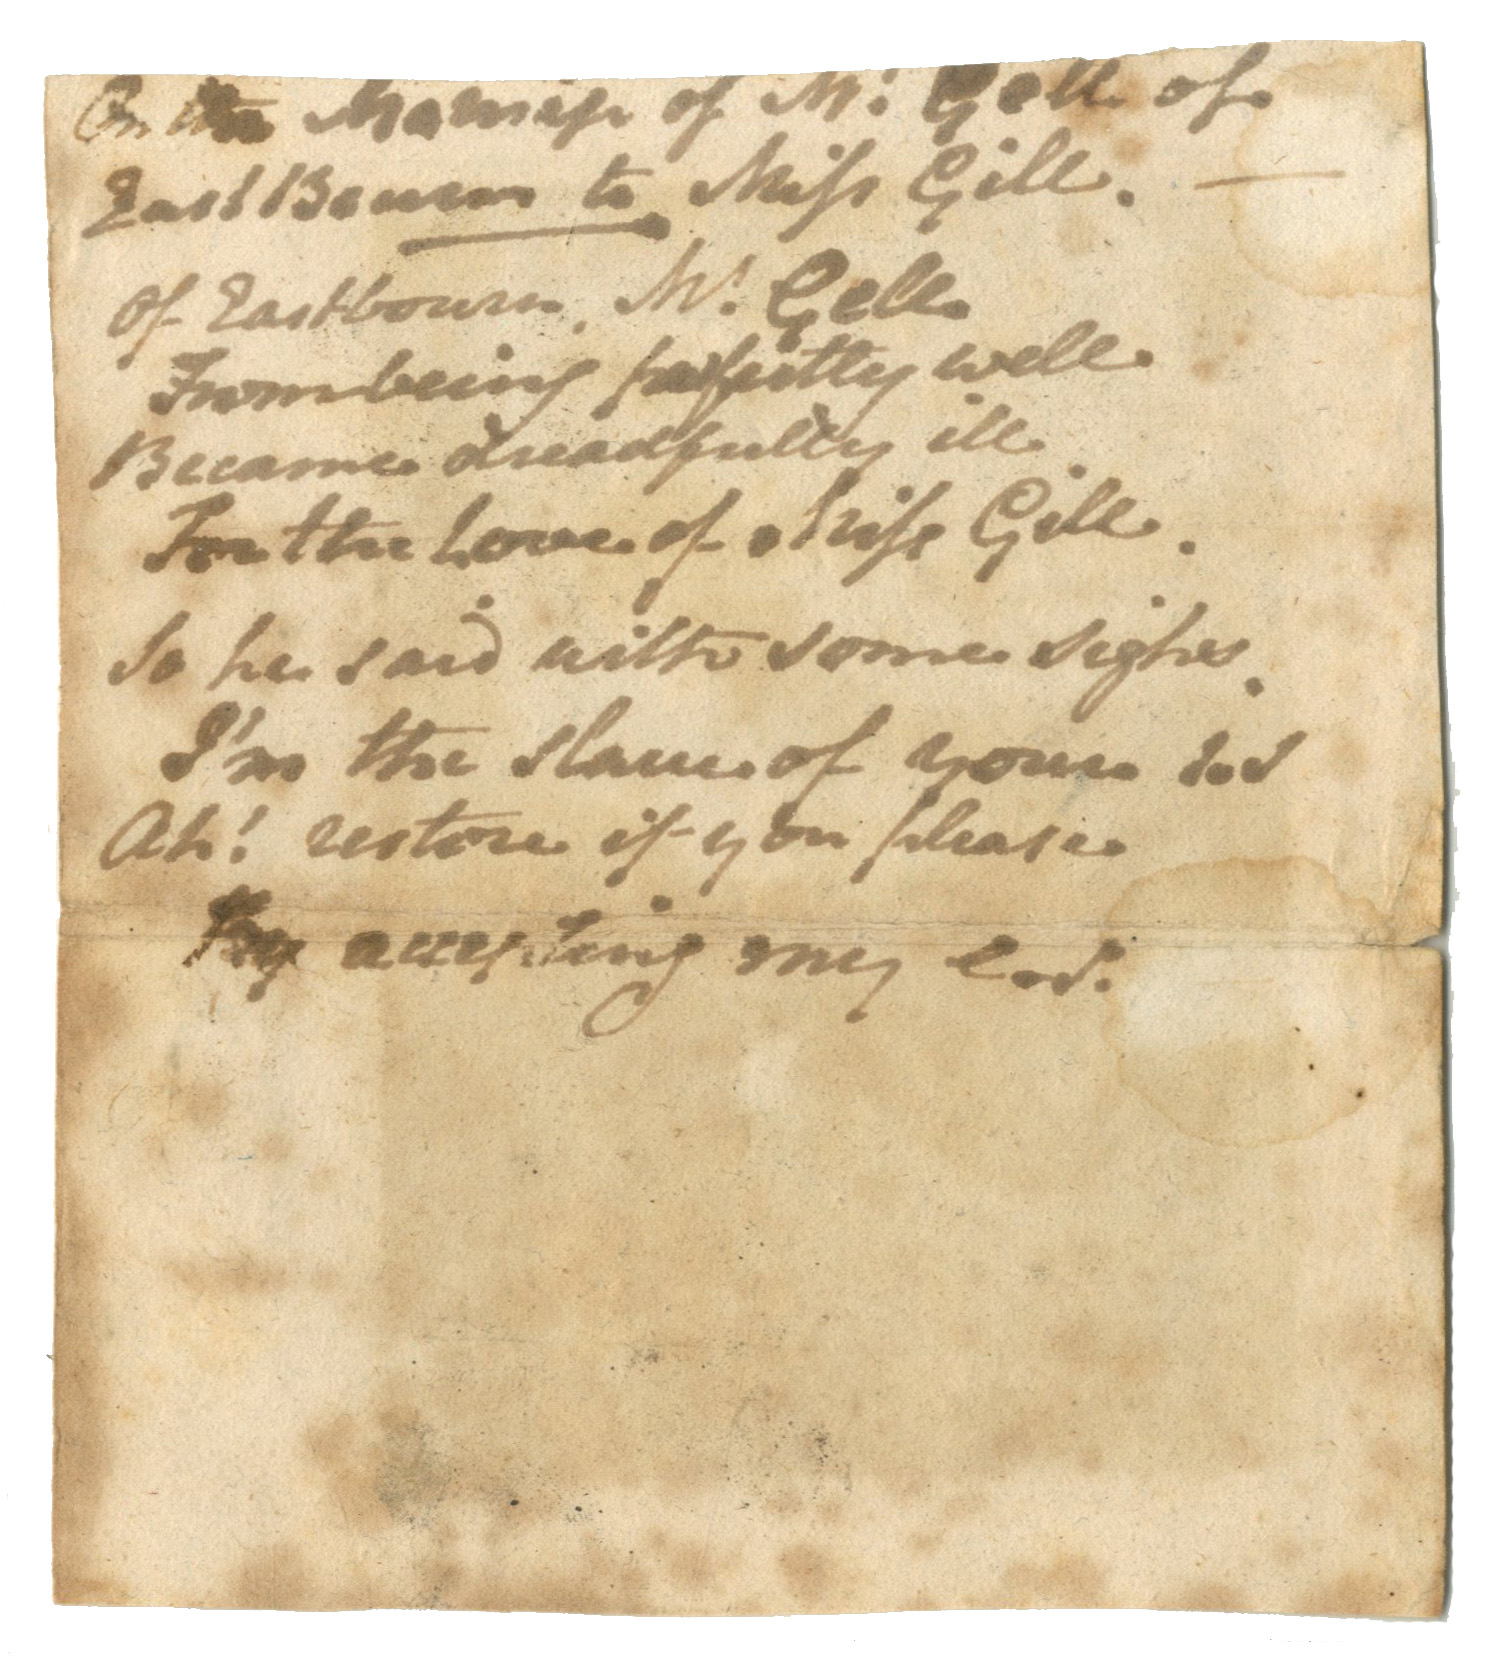 On the Marriage of Mr. Gell of
East Bourn to Miss Gill. —
of Eastbourn, Mr. Gell
From being perfectly well
Became dreadfully ill
For the Love of Miss Gill.
So he said with some sighs.
I'm the slave of your i.s
Ah! restore if you please
By accepting my e.s.